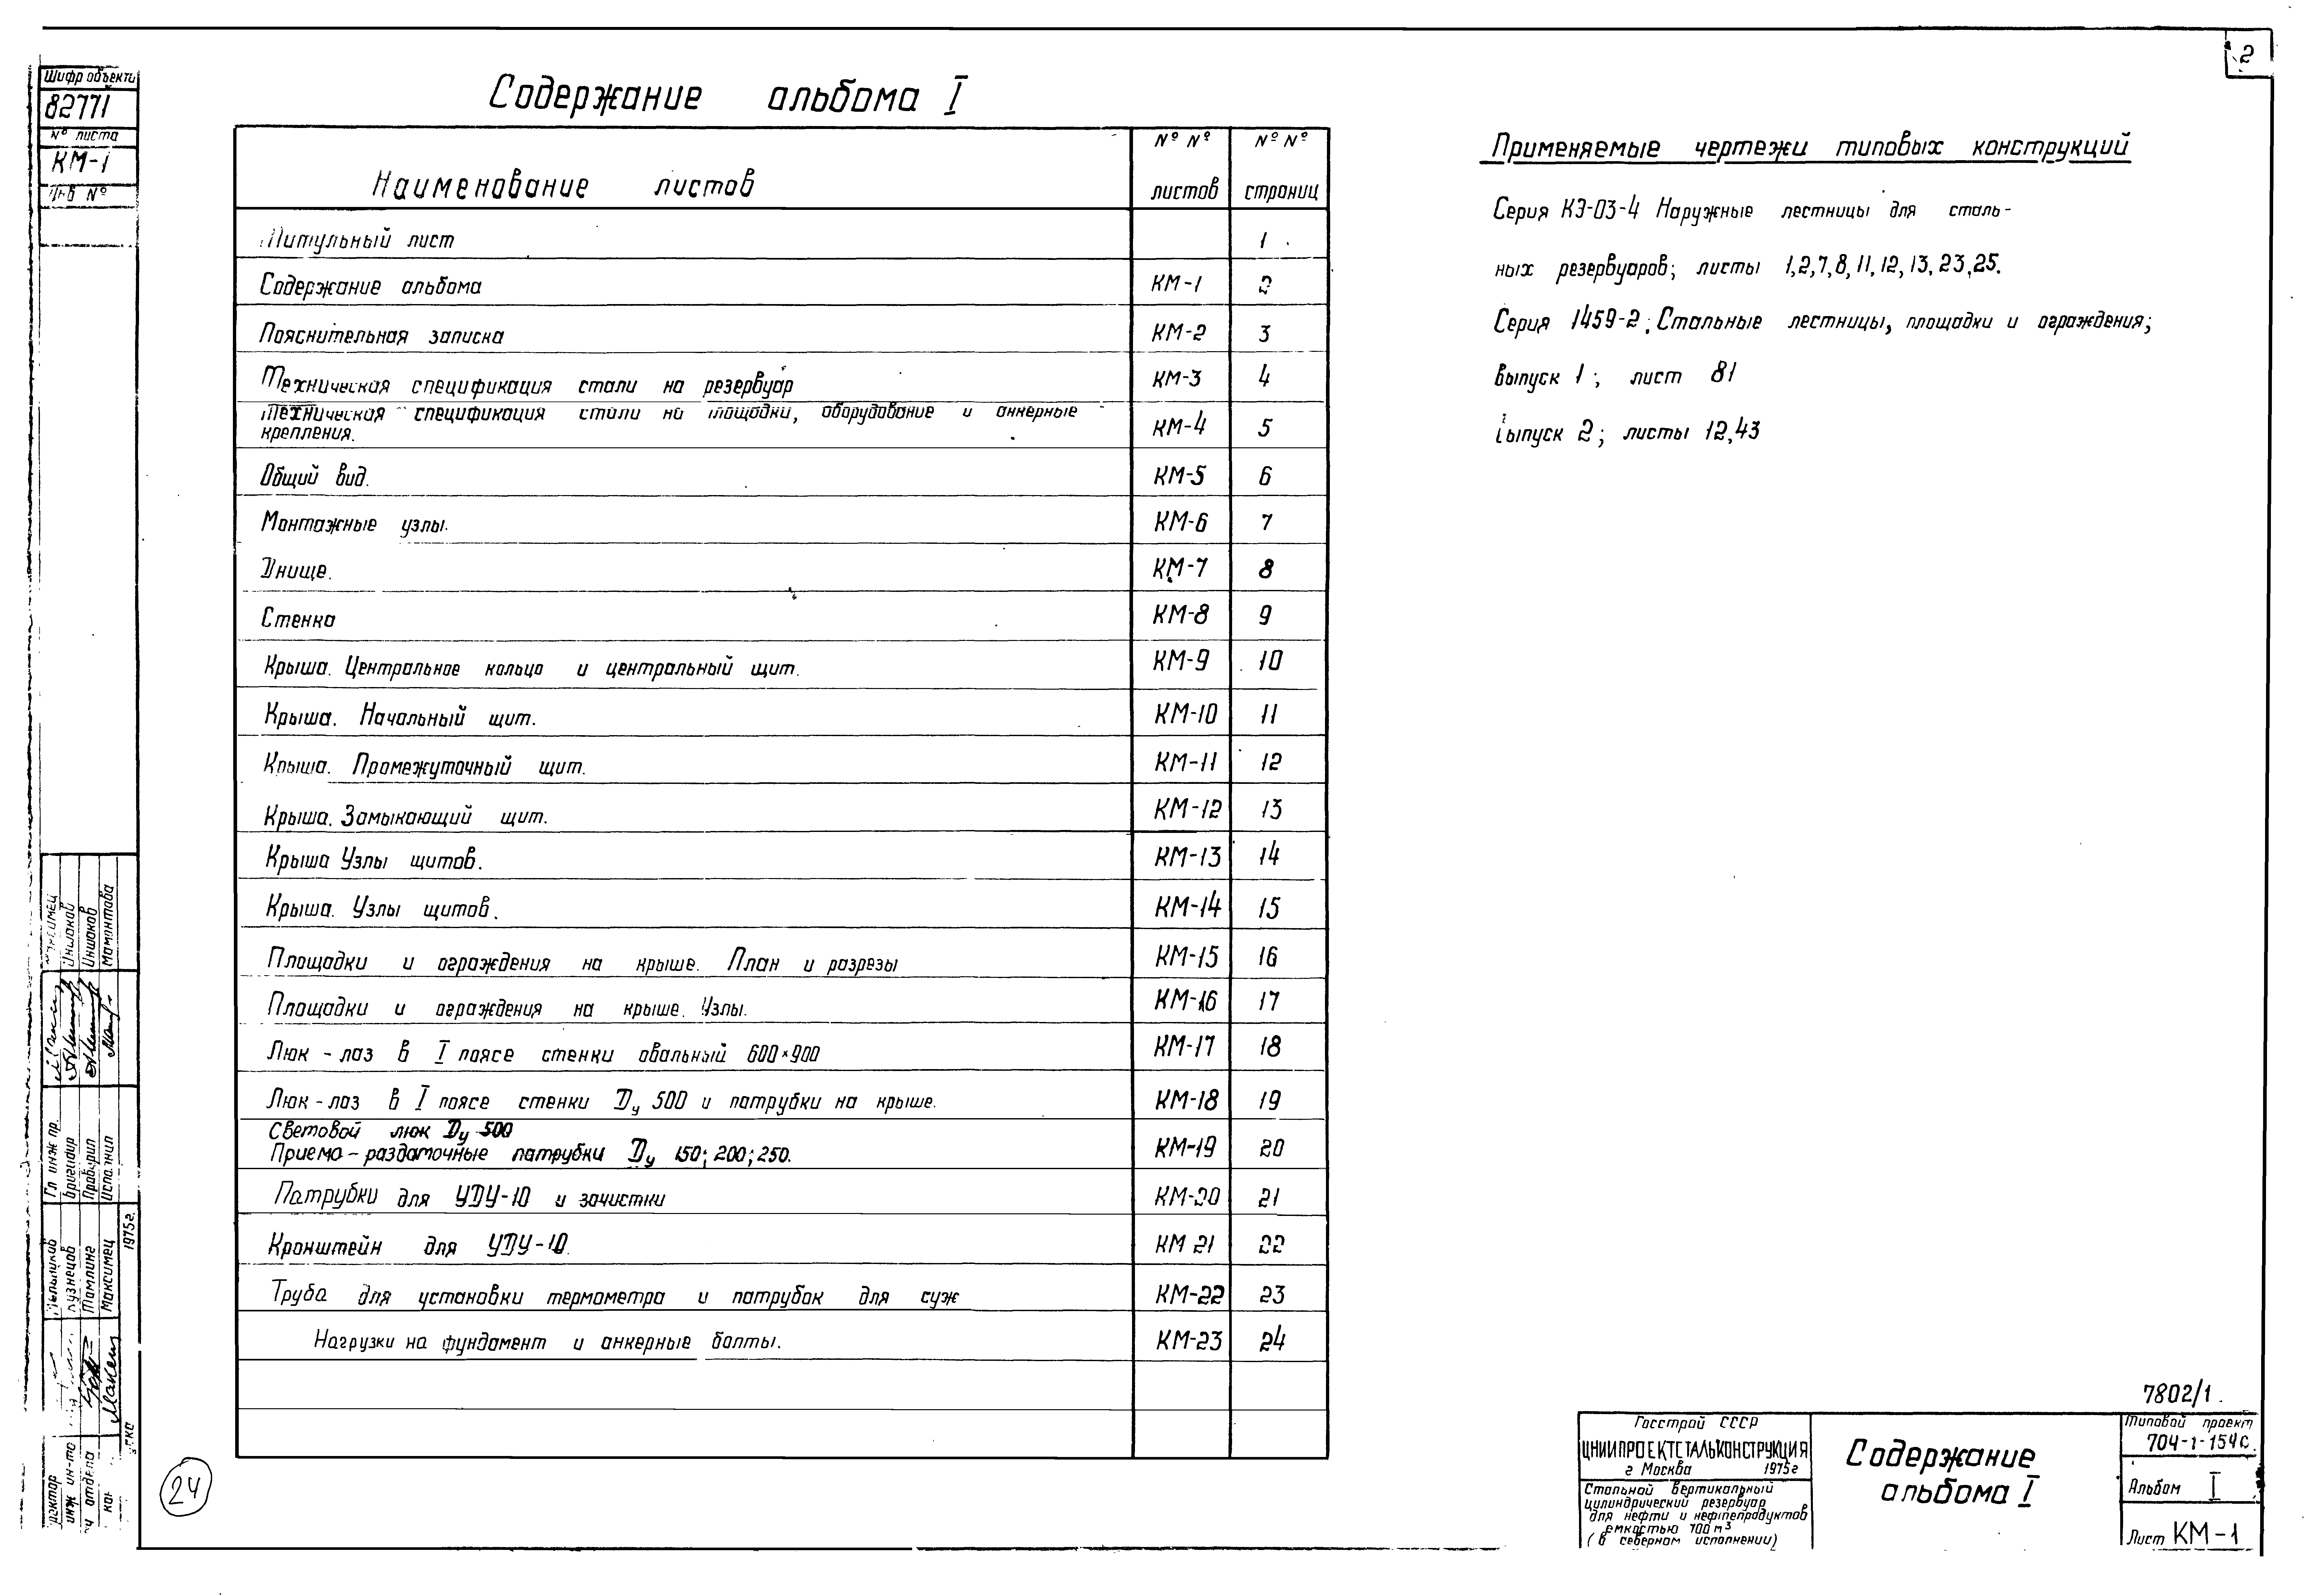 2
Шифр объекта
82771
№ листа
КМ-1
Инв №
Содержание альбома I
Наименование листов
№ № листов
№ № страниц
Титульный лист 1
Содержание альбома КМ-1 2
Пояснительная записка КМ-2 3
Техническая спецификация стали на резервуар КМ-3 4
Техническая спецификация стали на площадки, оборудование и анкерные
крепления. КМ-4 5
Общий вид. КМ-5 6
Монтажные узлы. КМ-6 7
Днище. КМ-7 8
Стенка КМ-8 9
Крыша. Центральное кольцо и центральный щит. КМ-9 10
Крыша. Начальный щит. КМ-10 11
Крыша. Промежуточный щит. КМ-11 12
Крыша. Замыкающий щит. КМ-12 13
Крыша Узлы щитов. КМ-13 14
Крыша. Узлы щитов. КМ-14 15
Площадки и ограждения на крыше. План и разрезы КМ-15 16
Площадки и ограждения на крыше. Узлы. КМ-16 17
Люк-лаз в I поясе стенки овальный 600×900 КМ-17 18
Люк-лаз в I поясе стенки Ду 500 и патрубки на крыше. КМ-18 19
Световой люк Ду 500
Приемо-раздаточные патрубки Ду 150; 200; 250. КМ-19 20
Патрубки для УДУ-10 и зачистки КМ-20 21
Кронштейн для УДУ-10. КМ 21 22
Труба для установки термометра и патрубок для суж КМ-22 23
Нагрузки на фундамент и анкерные болты. КМ-23 24
Применяемые чертежи типовых конструкций
Серия КЭ-03-4 Наружные лестницы для сталь-
ных резервуаров; листы 1,2,7,8,11,12,13,23,25.
Серия 1459-2. Стальные лестницы, площадки и ограждения;
выпуск 1; лист 81
выпуск 2; листы 12,43
Максимец
Иншаков
Иншаков
Мамонтова
Гл инж пр.
Бригадир
Проверил
Исполнил
Мельников
Кузнецов
Томлинг
Максимец
1975г.
24
7802/1
Госстрой СССР
ЦНИИПРОЕКТСТАЛЬКОНСТРУКЦИЯ
г Москва 1975г
Стальной вертикальный
цилиндрический резервуар
для нефти и нефтепродуктов
емкостью 100 м³
(в северном исполнении)
Содержание
альбома I
Типовой проект
704-1-154с.
Альбом I
Лист КМ-1